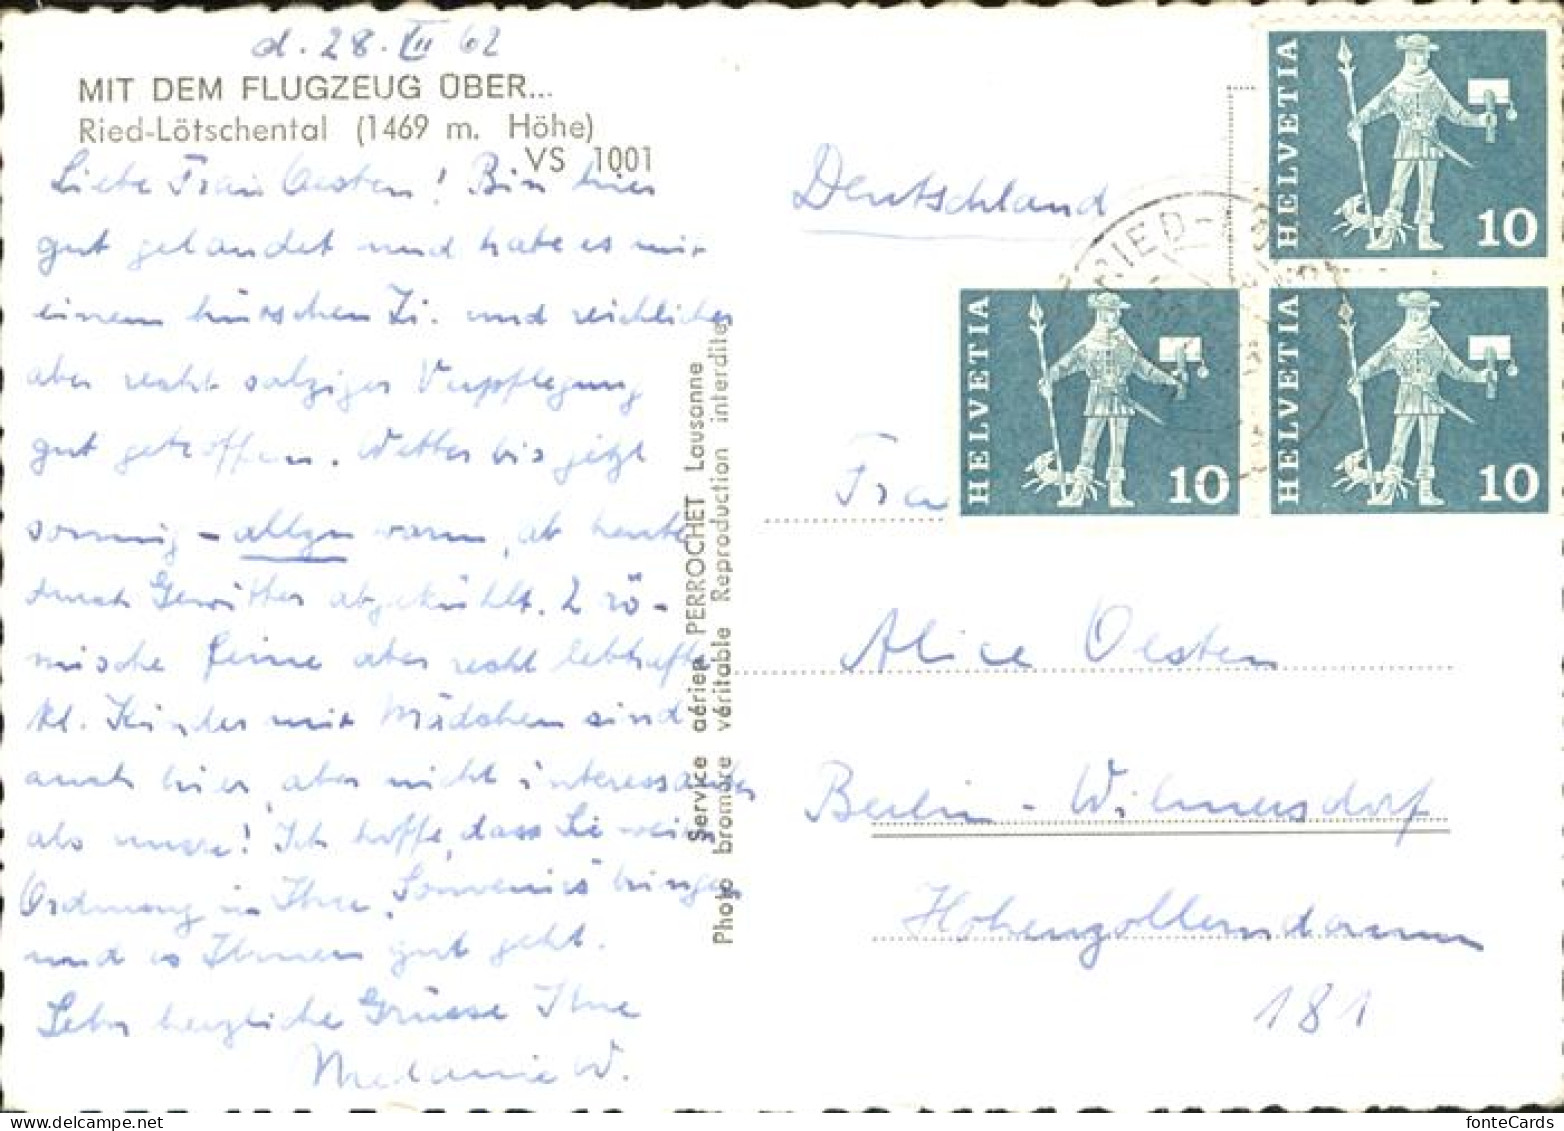 d. 28. VII 62
MIT DEM FLUGZEUG ÜBER...
Ried-Lötschental (1469 m. Höhe)
VS 1001
Liebe Frau Oesten! Bin hier
gut gelandet und habe es mit
einem hübschen Zi. und reichlicher
aber recht salziger Verpflegung
gut getroffen. Wetter bis jetzt
sonnig - allzu warm, ab heute
durch Gewitter abgekühlt. 2 rö-
mische feine aber recht lebhafte
kl. Kinder mit Mädchen sind
auch hier, aber nicht interessanter
als unsere! Ich hoffe, dass Sie wenig
Ordnung in Ihre Souvenirs bringen
und es Ihnen gut geht.
Sehr herzliche Grüsse Ihre
Melanie W.
Service aérien PERROCHET Lausanne
Photo bromure véritable Reproduction interdite
Deutschland
HELVETIA 10
HELVETIA 10
HELVETIA 10
RIED-
Frau
Alice Oesten
Berlin - Wilmersdorf
Hohenzollerndamm
181
fonteCards